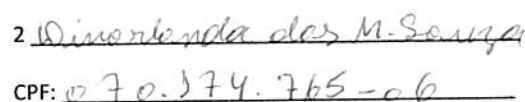 2 Dinorlanda das M. Souza
CPF: 070.374.765-06